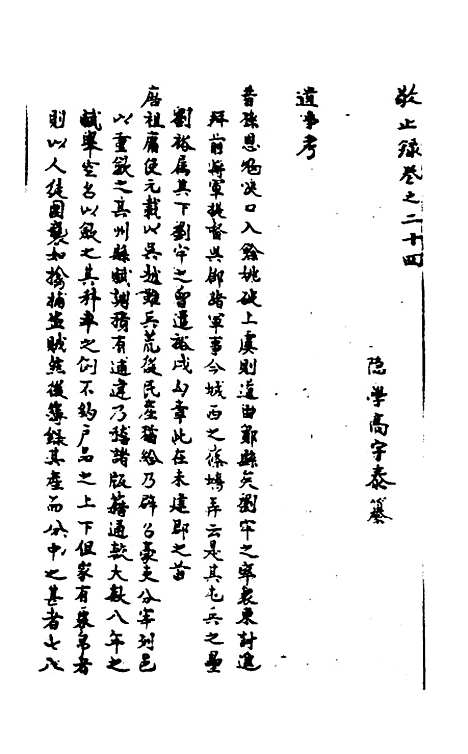 敬止錄卷之二十四
隐學高宇泰纂
遺事考
晋孫恩從浹口入餘姚破上虞則道由鄮縣矣劉牢之率衆東討進
拜前將軍提督吳郡諸軍事今城西之篠墻弄云是其屯兵之壘
劉裕屬其下劉牢之曾遣裕戍勾章此在未建郡之昔
唐租庸使元載以吳越雖兵荒後民產猶給乃辟召豪吏分宰列邑
以重斂之其州縣賦調積有逋違乃稽諸版籍通數大數八年之
賦舉空名以斂之其科率之例不約戶品之上下但家有粟帛者
則以人徒圍襲如擒捕盜賊然後簿錄其產而分中之甚者七八